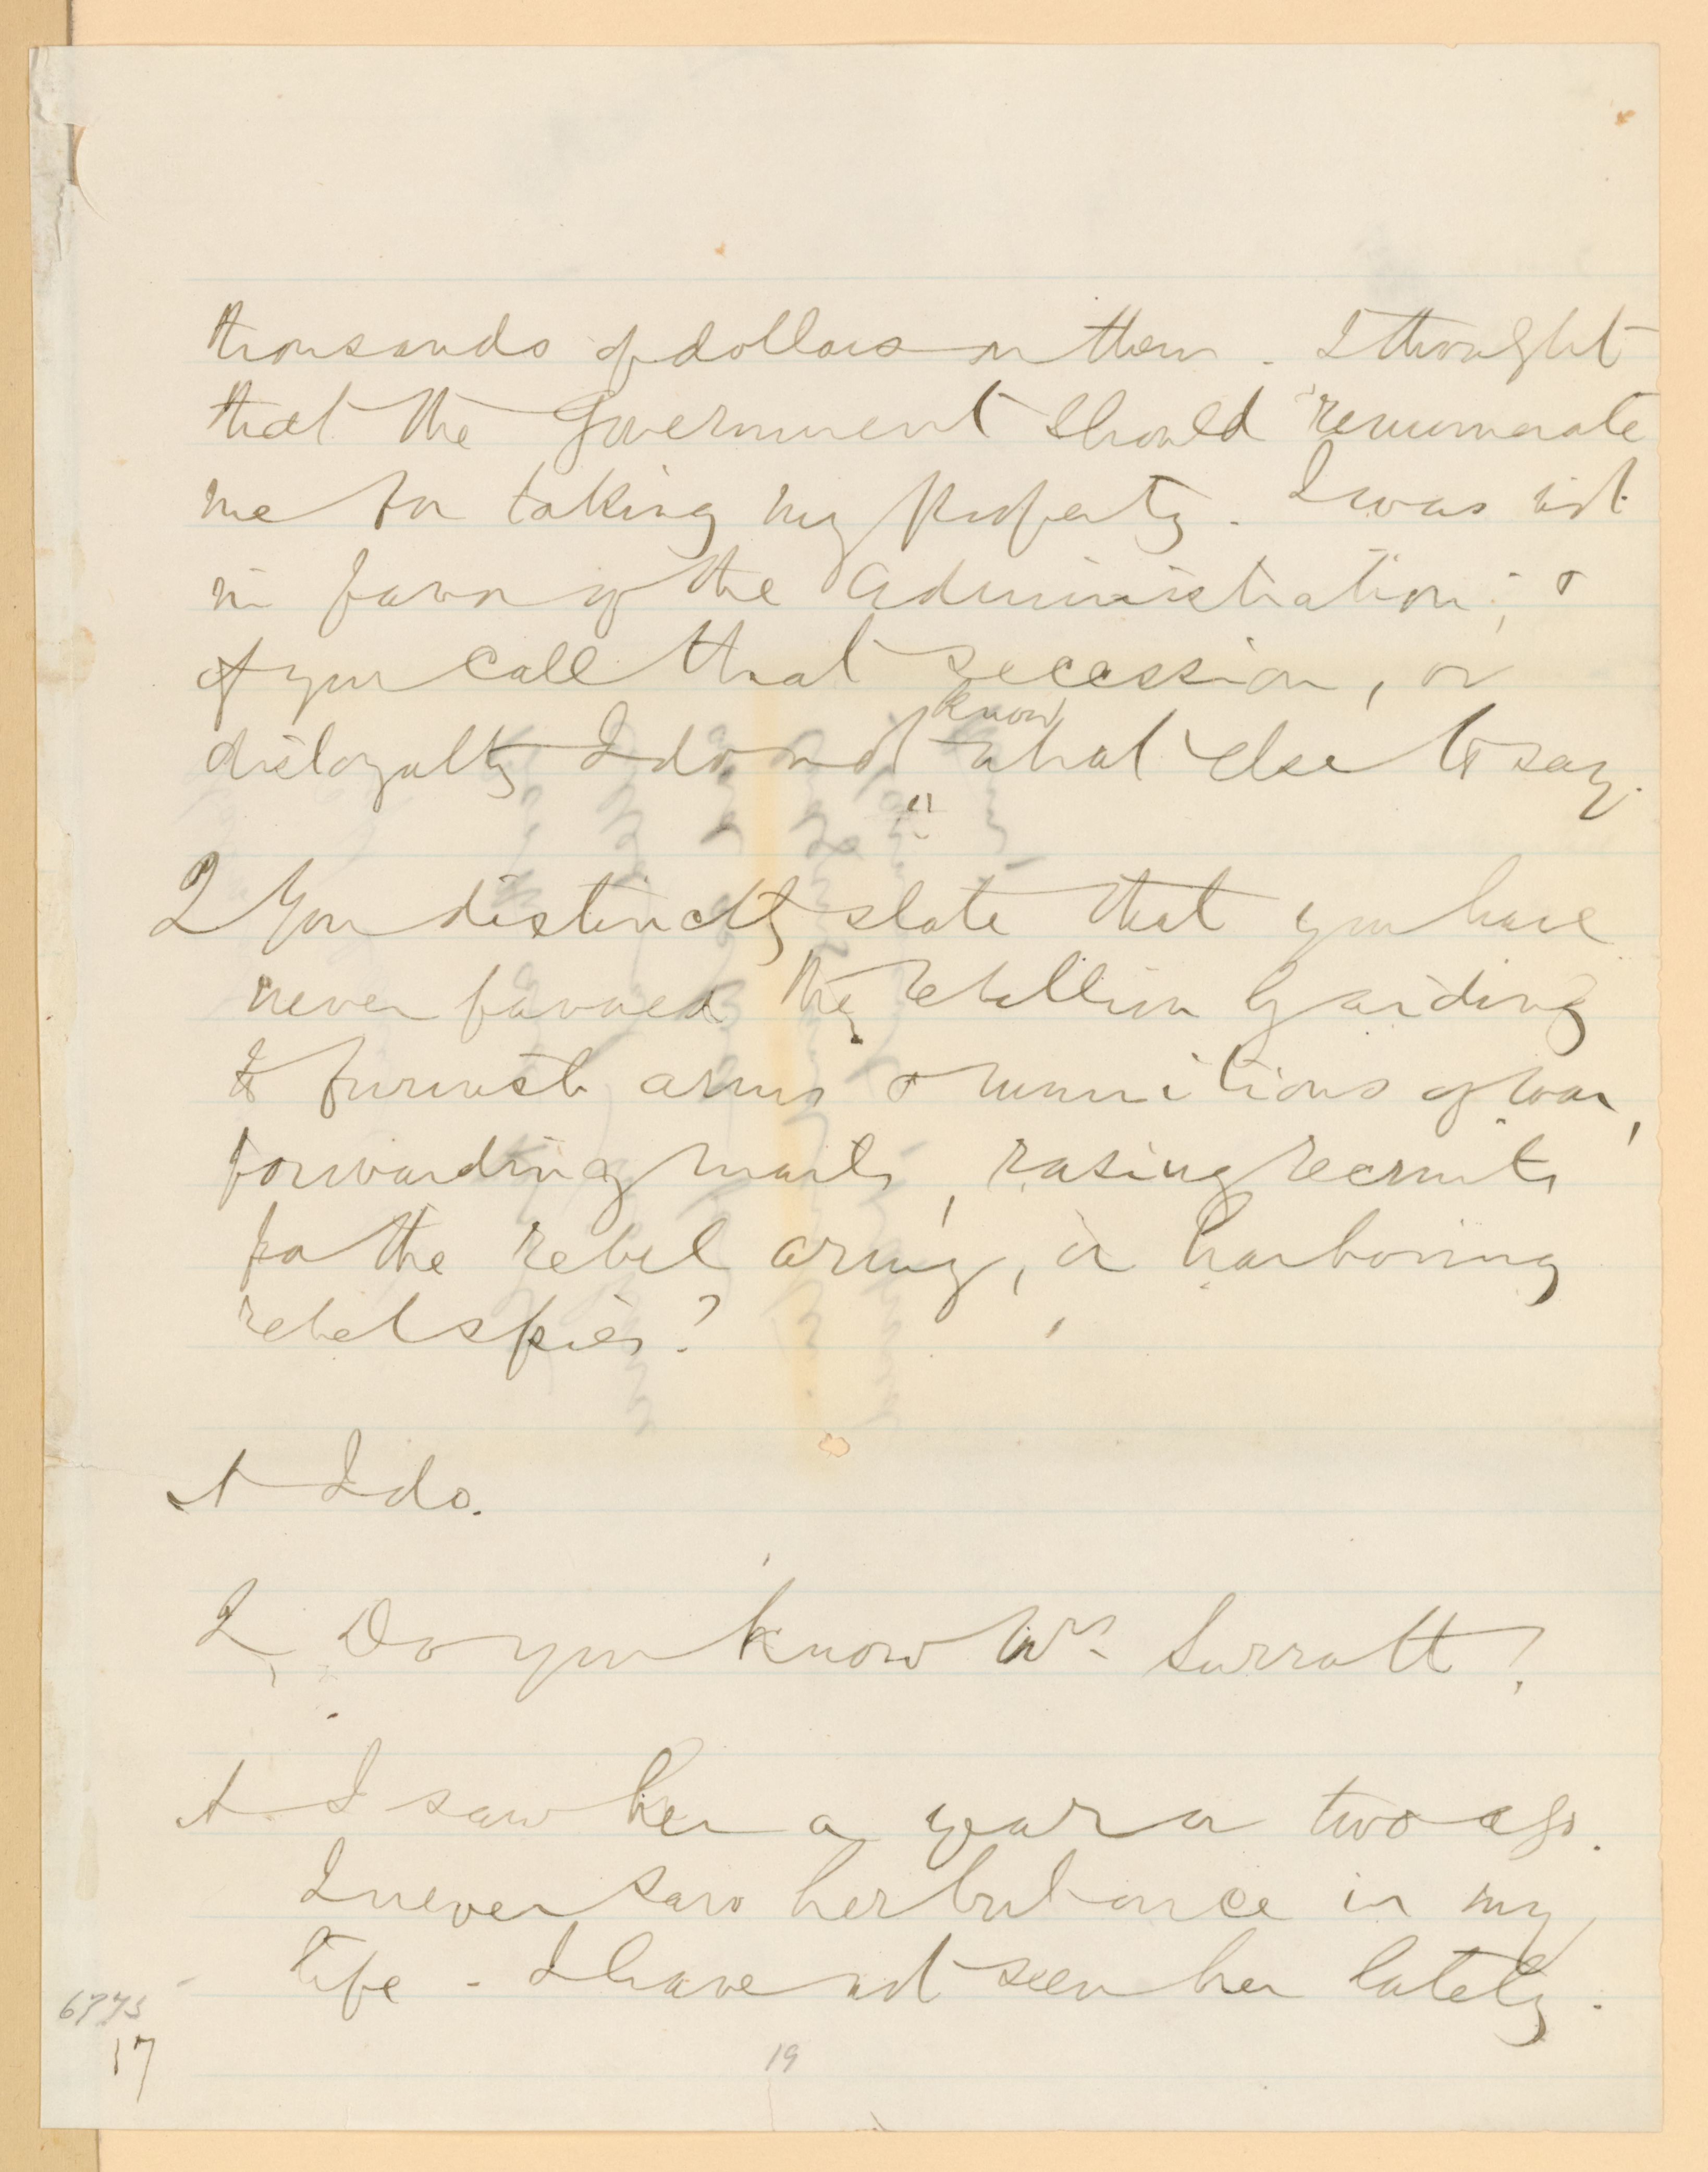 thousands of dollars on them. I thought
that the Government should renumerate
me for taking my property. I was not
in favor of the Administration; &
if you call that secession, or
disloyalty I do not know what else to say.
Q You distinctly state that you have
never favored the rebellion by aiding
to furnish arms & munitions of war,
forwarding mails, rasing recruits
for the rebel army, or harboring
rebel spies?
A I do.
Q. Do you know Mrs Surratt?
A I saw her a year or two ago.
I never saw her but once in my
life. I have not seen her lately.
17
19